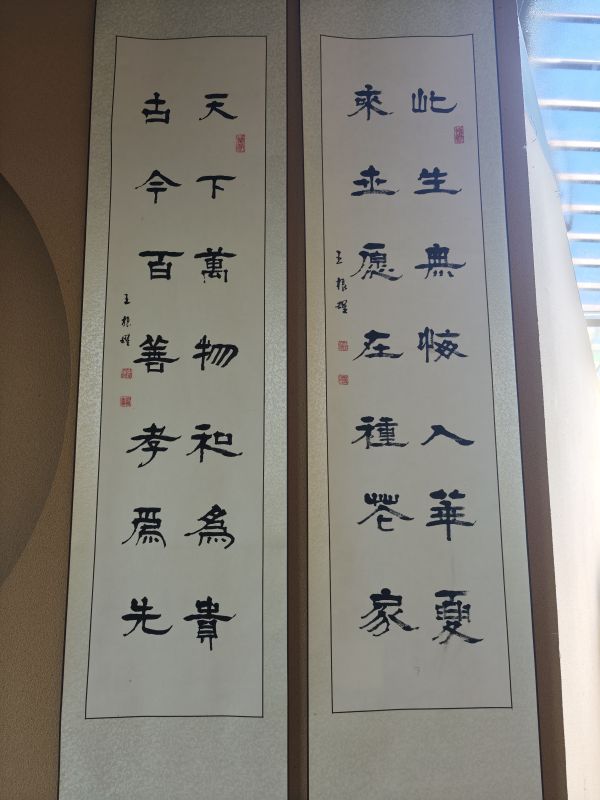 此生無悔入華夏
來世愿在種花家
王振耀
天下萬物和為貴
古今百善孝為先
王振耀